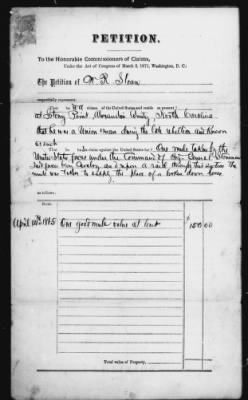 PETITION.
To the Honorable Commissioners of Claims,
Under the Act of Congress of March 3, 1871, Washington, D. C.:
The Petition of W. R. Sloan
respectfully represents:
That he is a citizen of the United States and reside at present
at Stony Point Alexander County North Carolina
that he was a Union man during the late rebellion and known
as such
That he has a claim against the United States for One mule taken by the
United States forces under the Command of
Cavalry and upon a raid through this section the
mule was taken to supply the place of a broken down horse
as follows:
April 1865 One good mule value at least $150.00
Total value of Property,